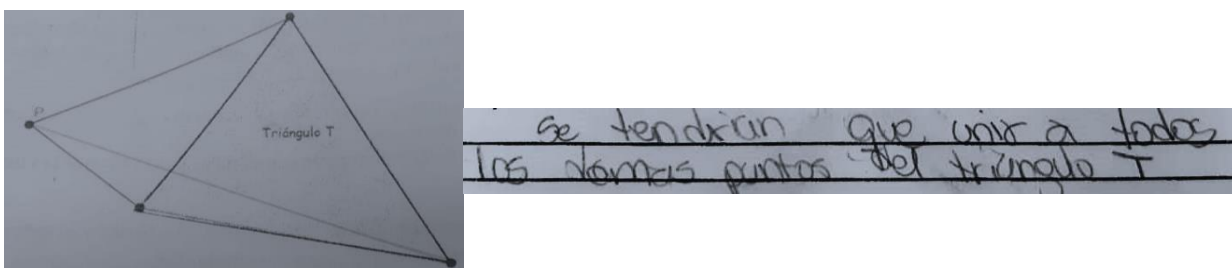 P
Triángulo T
se tendrian que unir a todos
los demas puntos del triángulo T